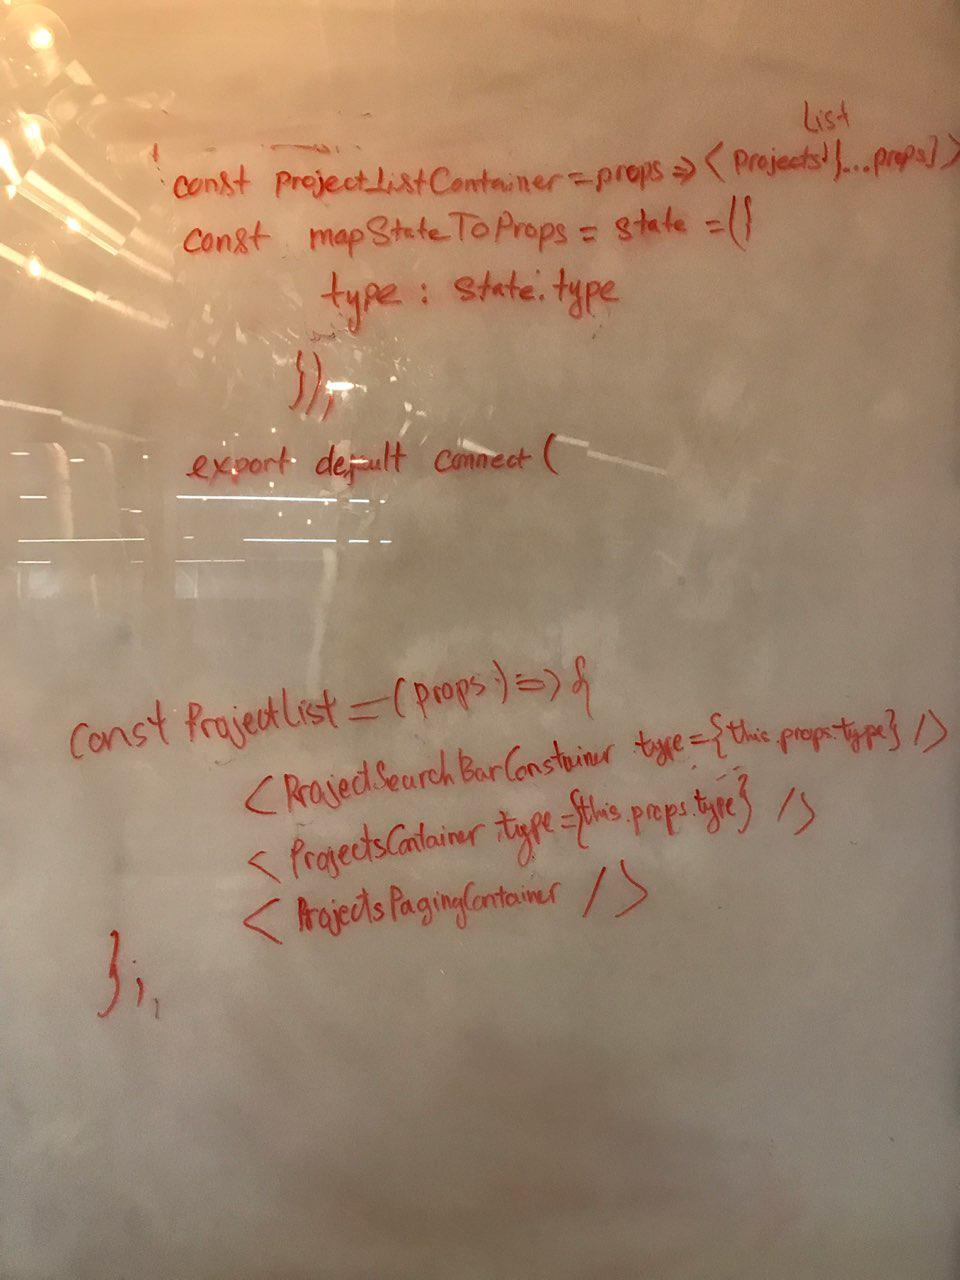 List
const ProjectListContainer = props => < Projects {...props} >
const mapStateToProps = state = ({
type : state.type
}),
export default connect (
const ProjectList = (props) => {
< ProjectSearchBarContainer type = {this.props.type} />
< ProjectsContainer type = {this.props.type} />
< ProjectsPagingContainer />
};